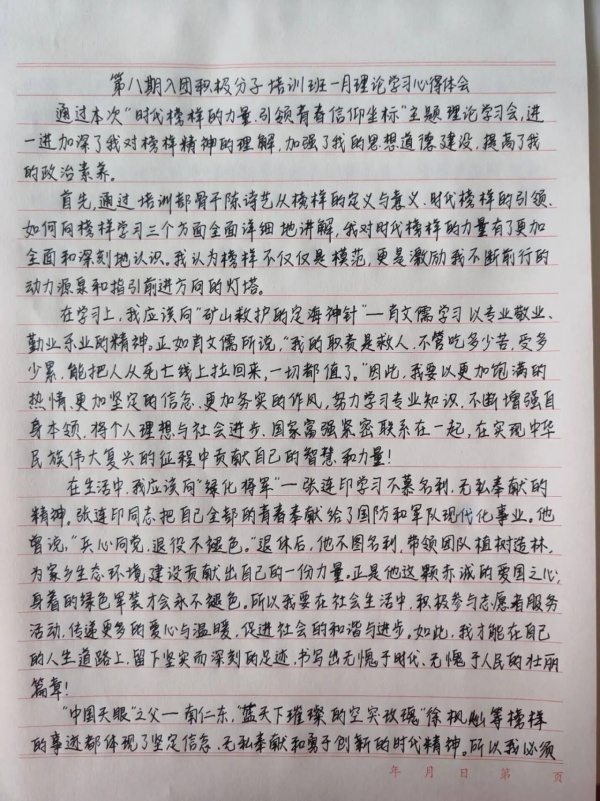 第八期入团积极分子培训班一月理论学习心得体会
通过本次“时代榜样的力量,引领青春信仰坐标”主题理论学习会,进
一进加深了我对榜样精神的理解,加强了我的思想道德建设,提高了我
的政治素养。
首先,通过培训部骨干陈诗艺从榜样的定义与意义、时代榜样的引领、
如何向榜样学习三个方面全面详细地讲解,我对时代榜样的力量有了更加
全面和深刻地认识。我认为榜样不仅仅是模范,更是激励我不断前行的
动力源泉和指引前进方向的灯塔。
在学习上,我应该向“矿山救护的定海神针”—肖文儒学习以专业敬业、
勤业乐业的精神。正如肖文儒所说,“我的职责是救人,不管吃多少苦,受多
少累,能把人从死亡线上拉回来,一切都值了。”因此,我要以更加饱满的
热情、更加坚定的信念、更加务实的作风,努力学习专业知识,不断增强自
身本领,将个人理想与社会进步、国家富强紧密联系在一起,在实现中华
民族伟大复兴的征程中贡献自己的智慧和力量!
在生活中,我应该向“绿化将军”—张连印学习不慕名利、无私奉献的
精神。张连印同志把自己全部的青春奉献给了国防和军队现代化事业。他
曾说,“兵心向党,退役不褪色。”退休后,他不图名利,带领团队植树造林,
为家乡生态环境建设贡献出自己的一份力量。正是他这颗赤诚的爱国之心,
身着的绿色军装才会永不褪色。所以我要在社会生活中,积极参与志愿者服务
活动,传递更多的爱心与温暖,促进社会的和谐与进步。如此,我才能在自己
的人生道路上,留下坚实而深刻的足迹,书写出无愧于时代、无愧于人民的壮丽
篇章!
“中国天眼”之父—南仁东,“蓝天下璀璨的空突玫瑰”徐枫灿等榜样
的事迹都体现了坚定信念、无私奉献和勇于创新的时代精神。所以我必须
年 月 日 第 页